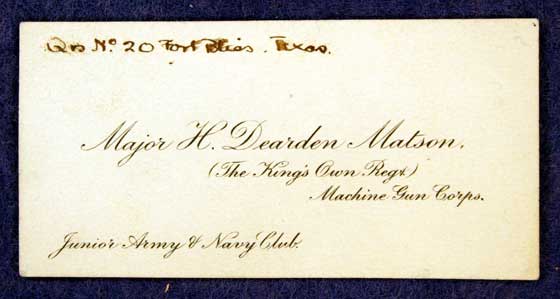 Qrs No. 20 Fort Bliss. Texas.
Major H. Dearden Matson.
(The King's Own Regt.)
Machine Gun Corps.
Junior Army & Navy Club.